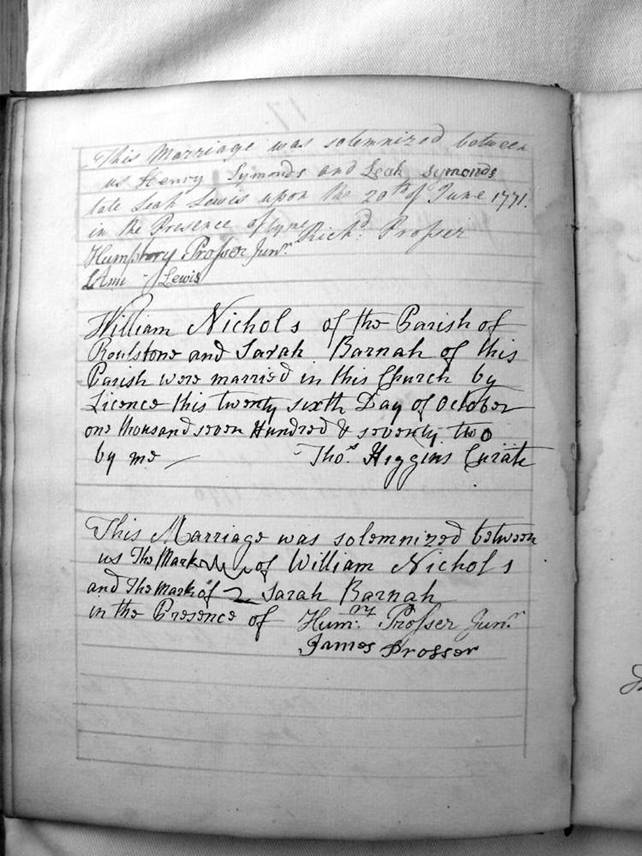 This Marriage was solemnized between
us Henry Symonds and Leah symonds
late Leah Lewis upon the 20th of June 1771.
in the Presence of Richd. Prosser
Humphry Prosser Junr.
Lewis
William Nichols of the Parish of
Roulstone and Sarah Barnah of this
Parish were married in this Church by
Licence this twenty sixth Day of October
one thousand seven Hundred & seventy two
by me Thos. Higgins Curate
This Marriage was solemnized between
us The Mark of William Nichols
and The Mark of Sarah Barnah
in the Presence of Humry. Prosser Junr.
James Prosser